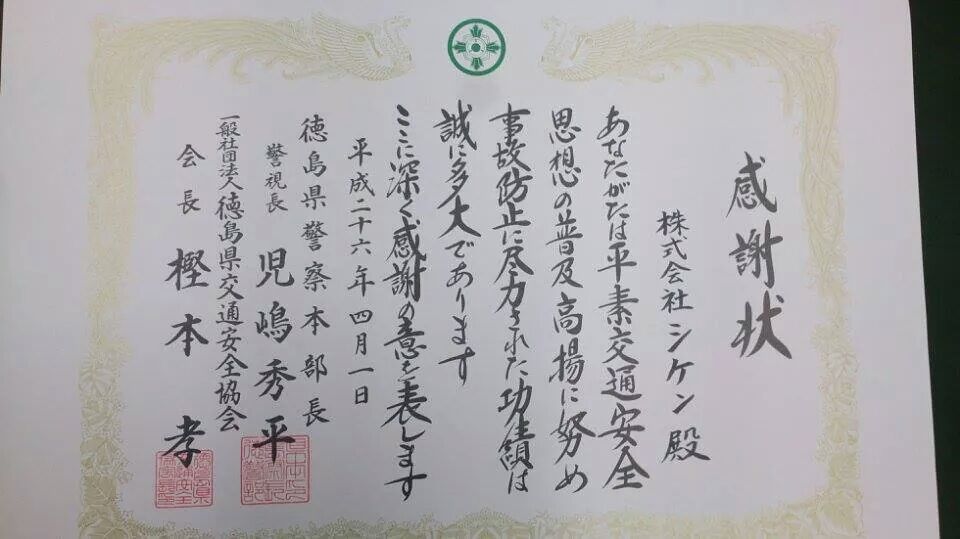 感謝状
株式会社シケン殿
あなたがたは平素交通安全
思想の普及高揚に努め
事故防止に尽力された功績は
誠に多大であります
ここに深く感謝の意を表します
平成二十六年四月一日
徳島県警察本部長
警視長 児嶋秀平
一般社団法人徳島県交通安全協会
会長 樫本孝